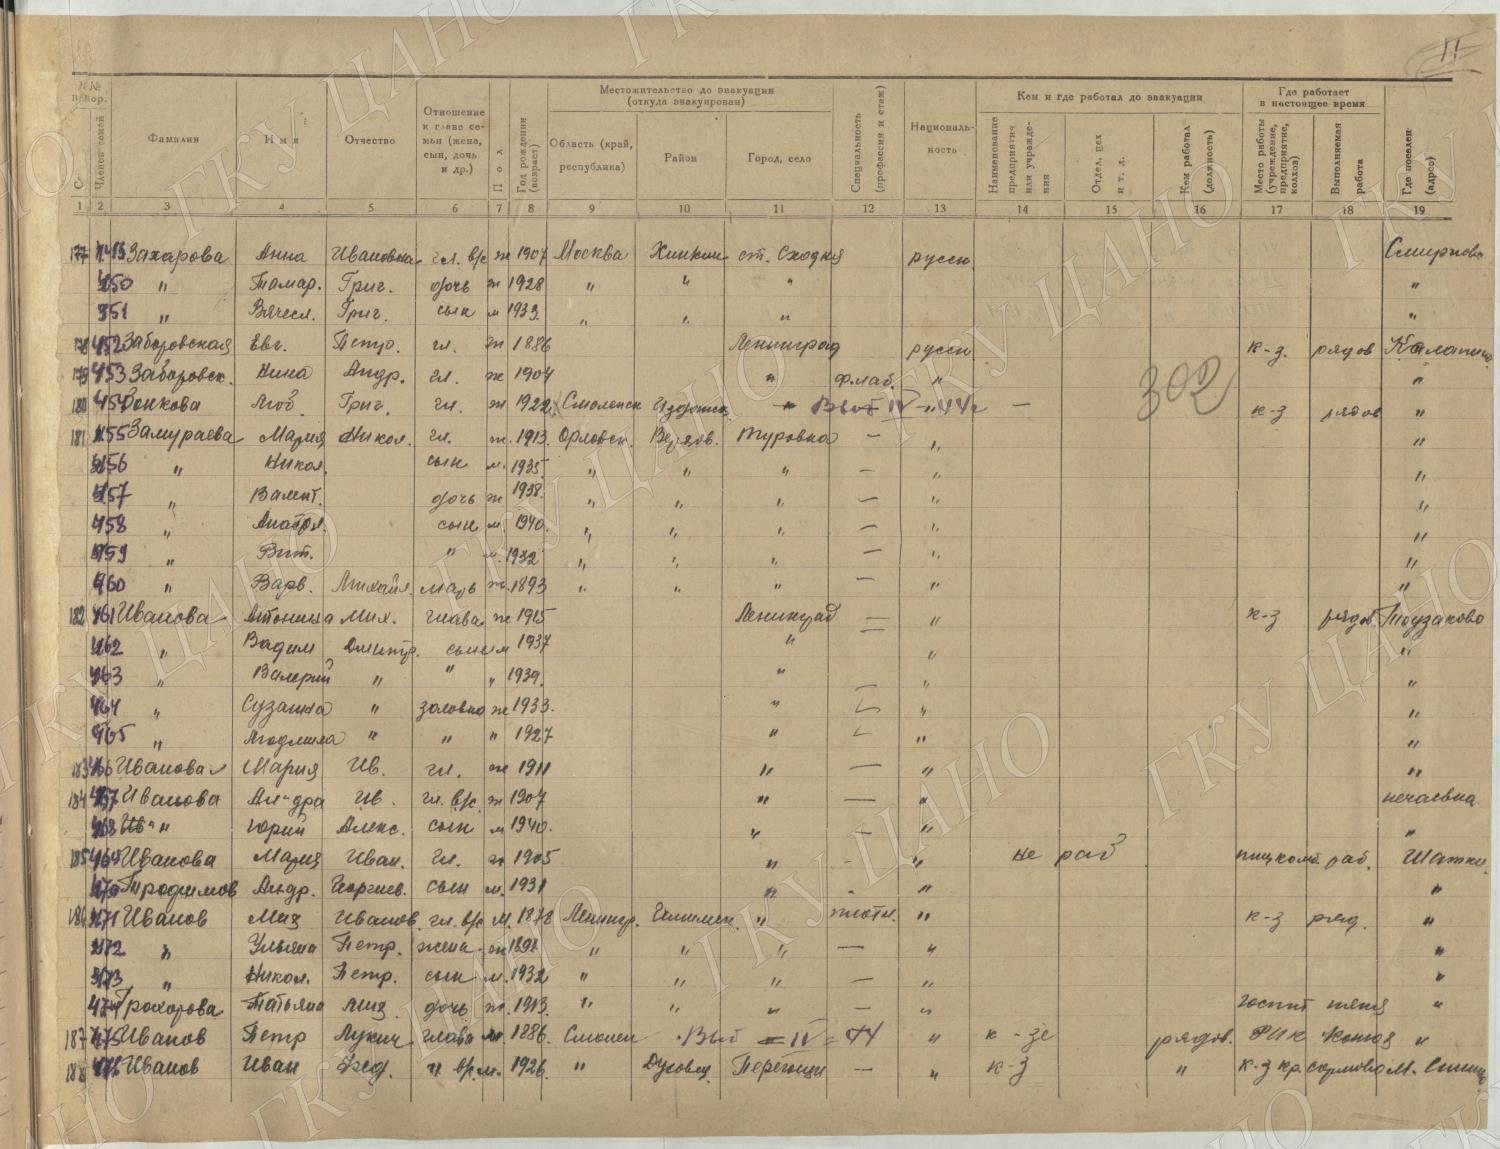 11
№№ п/пор.
Членов семей
Фамилия
Имя
Отчество
Отношение к главе семьи (жена, сын, дочь и др.)
Пол
Год рождения (возраст)
Местожительство до эвакуации (откуда эвакуирован)
Область (край, республика)
Район
Город, село
Специальность (профессия и стаж)
Националь-ность
Кем и где работал до эвакуации
Наименование предприятия или учрежде-ния
Отдел, цех и т. д.
Кем работал (должность)
Где работает в настоящее время
Место работы (учреждение, предприятие, колхоз)
Выполняемая работа
Где поселен (адрес)
1 2 3 4 5 6 7 8 9 10 11 12 13 14 15 16 17 18 19
177 Захарова Анна Ивановна гл. в/с ж 1907 Москва Химкин ст. Сходня русск. Смирново
450 " Тамар. Григ. дочь ж 1928 " " " "
451 " Вячесл. Григ. сын м 1933. " " " "
452 Заборовская Евг. Петр. гл. ж 1886 Ленинград русск к-з. рядов
179 453 Заборовск. Нина Андр. гл. ж 1904 " " "
302
180 454 Люб Григ. гл. ж 1922 Смоленск " IV " 44г — к-з рядов "
181 455 Замураева Мария Никол. гл. ж. 1913. Орловск. Туровка — " "
456 " Никол. сын м. 1935 " " " — " "
457 " Валент. дочь ж 1938. " " " — " "
458 " Анатол. сын м. 1940. " " " — " "
459 " Вит. " м. 1932 " " " — " "
460 " Варв. Михайл. мать ж. 1893 " " " — " "
182 461 Иванова Антонина Мих. глава ж 1915 Ленинград — " к-з рядов.
462 " Вадим Дмитр. сын м 1937 " " "
463 " Валерий " " " 1939. " " "
464 " Сузанна " золовка ж 1933. " " "
465 " Людмила " " " 1927 " " "
183 466 Иванова Мария Ив. гл. ж 1911 " — " "
184 467 Иванова Ал-дра Ив. гл. в/с ж 1907 " — " нечаевка
468 " Юрий Алекс. сын м 1940. " — " "
185 469 Иванова Мария Иван. гл. ж 1905 " - " не раб раб. Шатки
470 Трофимов Андр. Георгиев. сын м. 1931 " " "
186 471 Иванов Миз Иванов. гл. в/с м. 1878 Ленингр. " плотн. " к-з ряд. "
472 " Ульяна Петр. жена ж " " " — " "
473 " Никол. Петр. сын м. 1932 " " " — " "
474 Прохорова Татьяна дочь ж. 1913. " " " — " госпит няня "
187 475 Иванов Петр Лукич глава м. 1886. Смолен IV = 44 " к-зе рядов. РИК конюх "
188 476 Иванов Иван Фед. " в/с м. 1926. " Духовщ. — " к-з " к-з кр.